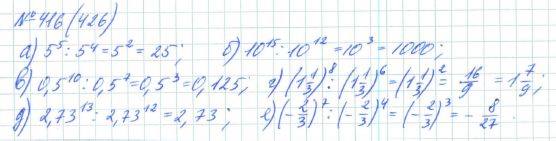 № 416 (426)
а) 5⁵ : 5⁴ = 5² = 25; б) 10¹⁵ : 10¹² = 10³ = 1000;
в) 0,5¹⁰ : 0,5⁷ = 0,5³ = 0,125; г) (1 1/3)⁸ : (1 1/3)⁶ = (1 1/3)² = 16/9 = 1 7/9;
д) 2,73¹³ : 2,73¹² = 2,73; е) (-2/3)⁷ : (-2/3)⁴ = (-2/3)³ = -8/27.